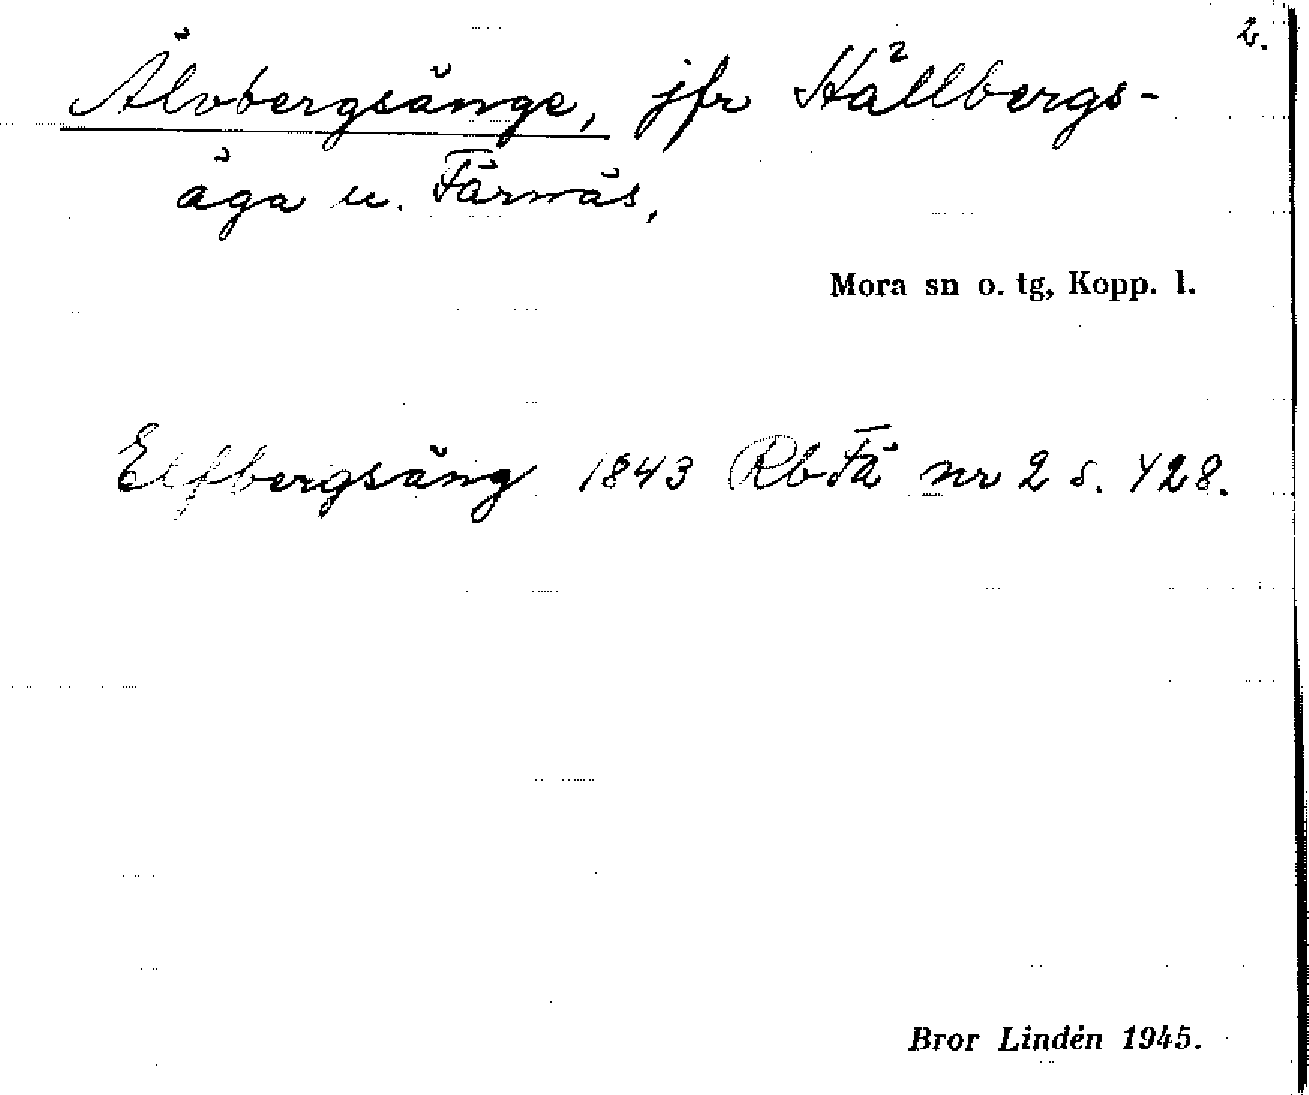 2.
Älvbergsänge, jfr Hållbergs-
åga u. Färnäs,
Mora sn o. tg, Kopp. l.
Elfbergsäng 1843 Rb Fä nr 2 s. 428.
Bror Lindén 1945.